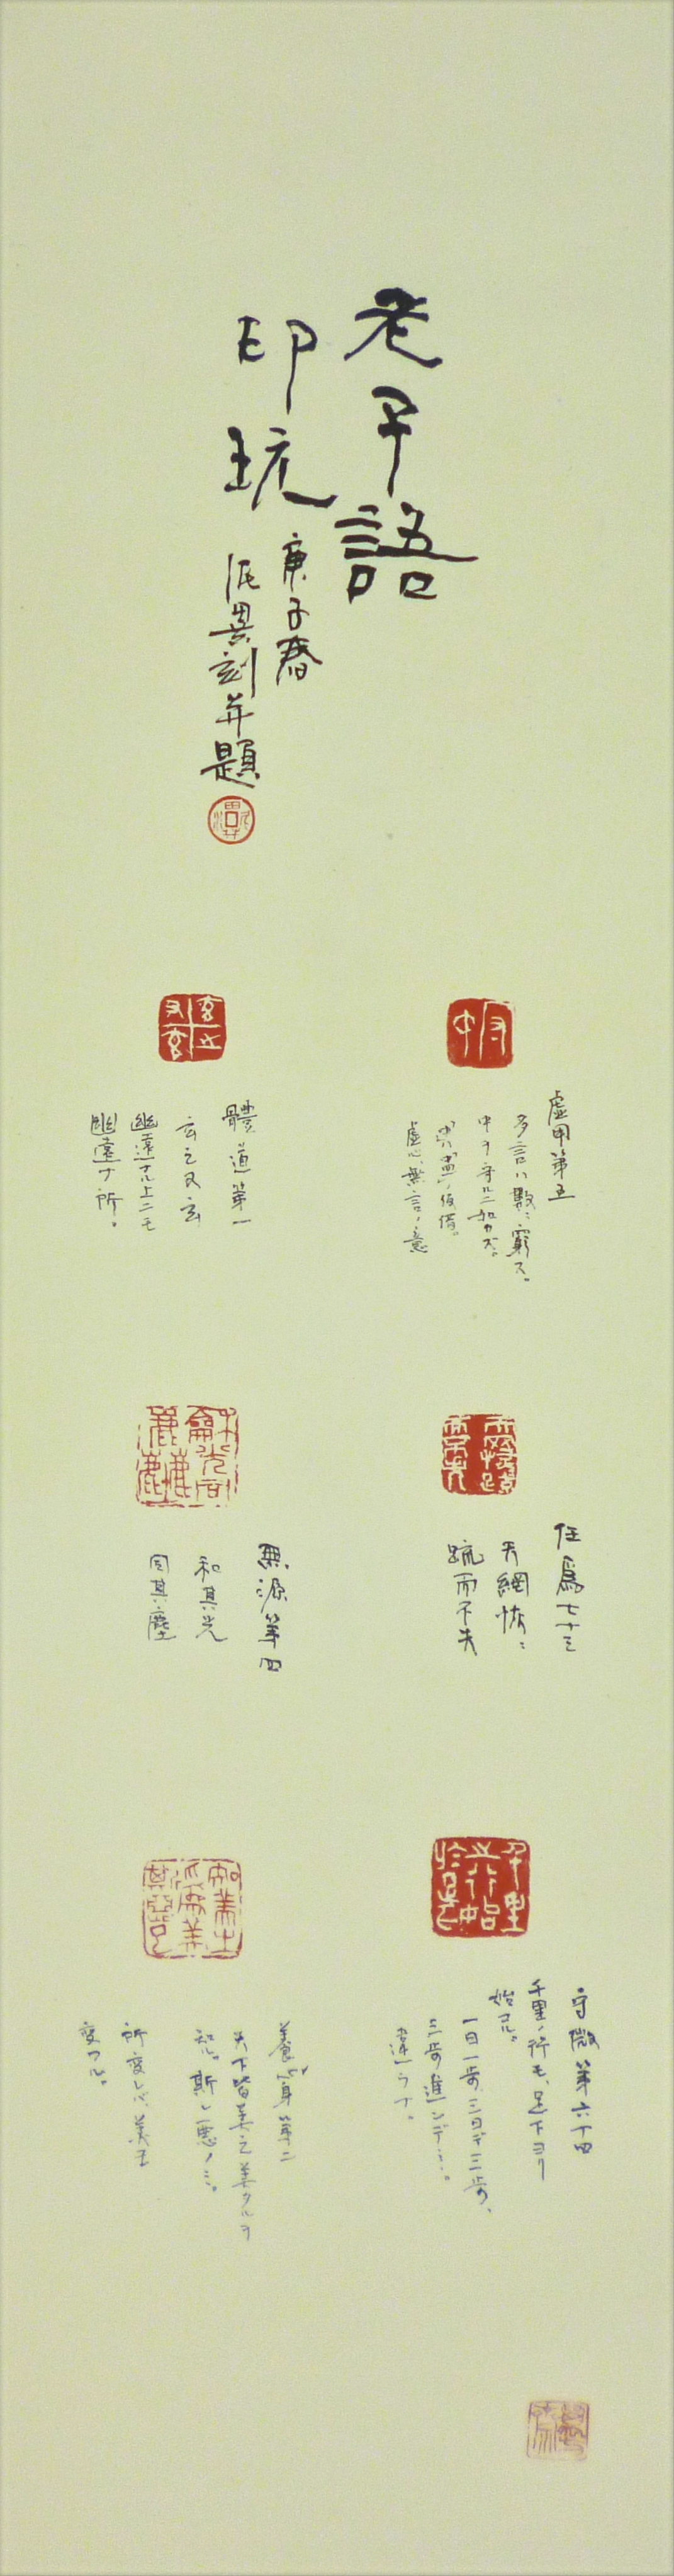 老子語
印玩
庚子春
泥異刻并題
守中
虚用第五
多言ハ數〻窮ス。
中ヲ守ルニ如カズ。
虚心無言ノ意
玄之又玄
體道第一
玄之又玄
幽遠ナル上ニモ
幽遠ナ所。
天網恢〻疏而不失
任爲七十三
天網恢〻
疏而不失
和光同塵
無源第四
和其光
同其塵
千里之行始於足下
守微第六十四
千里ノ行モ、足下ヨリ
始マル。
一日一歩、三日デ三歩、
三歩進ンデ…。
違ウナ。
知美之爲美斯惡已
養身第二
天下皆美之美タルヲ
知ル。斯レ悪ノミ。
所変レバ、美モ
変ワル。